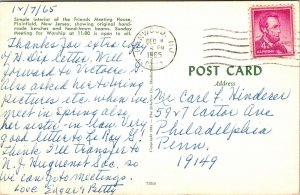 14/7/65
Simple interior of the Friends Meeting House,
Plainfield, New Jersey, showing original hand-
made benches and hand-hewn beams. Sunday
Meeting for Worship at 11:00 is open to all.
Thanks for extra copy
of H. Dip letter. Will
forward to Victoire S.
Also asked her to bring
pictures etc. when we
meet in Spring also
her sister-in-law. Very
good letter to Ray G.
Think I'll transfer to
N.J. Huguenot Soc. so
we can go to meetings.
Love Edgar & Betty
DEC 8
PM
1965
4¢
POST CARD
Address
Mr. Carl F. Hinderer
5927 Castor Ave
Philadelphia
Penn.
19149